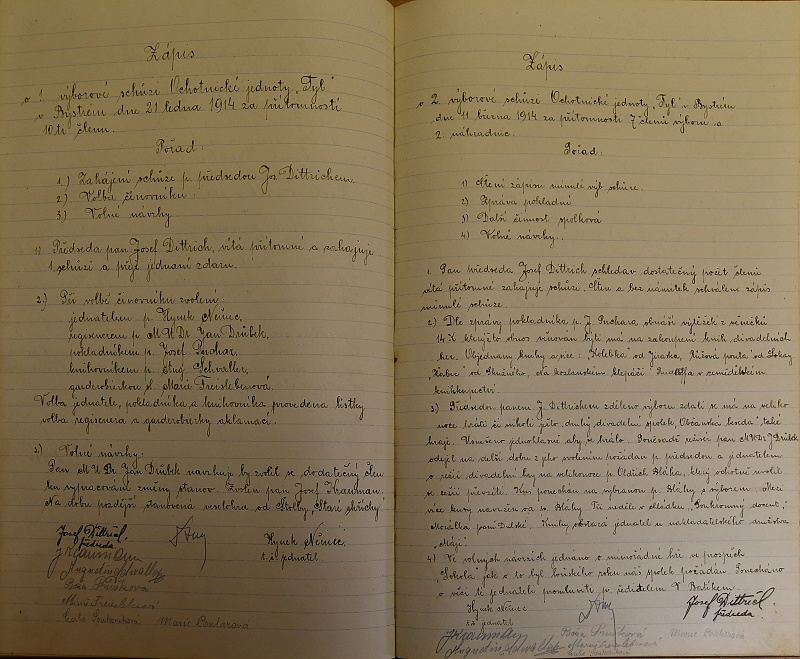 Zápis
o 1. výborové schůzi Ochotnické jednoty „Tyl"
v Bystrém dne 21 ledna 1914 za přítomnosti
10ti členů.
Pořad:
1.) Zahájení schůze p. předsedou Jos Dittrichem.
2.) Volba činovníků
3.) Volné návrhy
1) Předseda pan Josef Dittrich, vítá přítomné a zahajuje
1 schůzi a přeje jednání zdaru.
2.) Při volbě činovníků zvoleni:
jednatelem p. Hynek Němec,
regisseurem p. MUDr. Jan Drůbek,
pokladníkem p. Josef Puchar,
knihovníkem p. Aug. Schvaller,
garderobiérkou sl. Marie Treislebenová.
Volba jednatele, pokladníka a knihovníka provedena lístky
volba regisseura a garderobiérky aklamací.
3.) Volné návrhy:
Pan MUDr Jan Drůbek navrhuje by zvolil se dodatečný člen
ku vypracování změny stanov. Zvolen pan Josef Krauman.
Na dobu pozdější stanovena veselohra od Štolby „Staré hříchy".
Josef Dittrich
předseda
Hynek Němec
t.č. jednatel
Marie Treislebenová
Zápis
o 2. výborové schůzi Ochotnické jednoty „Tyl" v Bystrém
dne 11 března 1914 za přítomnosti 7 členů výboru a
2 náhradnic.
Pořad:
1) Čtení zápisu minulé výb schůze.
2) Zpráva pokladní
3) Další činnost spolková
4) Volné návrhy.
1. Pan předseda Josef Dittrich shledav dostatečný počet členů
vítá přítomné zahajuje schůzi. Čten a bez námitek schválen zápis
minulé schůze.
2) Dle zprávy pokladníka p. J. Puchara obnáší výtěžek z věnečků
14 K kterýžto obnos věnován býti má na zakoupení knih divadelních
her. Objednány knihy a sice: „Kolébka" od Jiráska, „Růžová pouta" od
od „Na kozlanském klepáči" v zemědělském
knihkupectví.
3) Předsedou panem J. Dittrichem sděleno výboru zdali se má na veliko
noce hráti či nikoli ježto druhý divadelní spolek „Občanská beseda" také
hraje. Usneseno jednohlasně aby se hrálo. Poněvadž režisér pan MUDr J Drůbek
odejel na delší dobu z jeho svolením požádán p. předsedou a jednatelem
o režii divadelní hry na velikonoce p. Oldřich Bláha, který ochotně uvolil
se režii převzíti. Kus ponechán na vybranou p. Bláhy s výborem. Mezi
více kusy navržen
Knihy obstará jednatel u nakladatelského družstva
„Máj".
4) Ve volných návrzích jednáno o mimořádné hře ve prospěch
„Sokola" jak o to byl loňského roku náš spolek požádán. Ponecháno
o věci té jednateli promluviti p. ředitelem V. Batíkem.
Hynek Němec
t.č. jednatel
Josef Dittrich
předseda